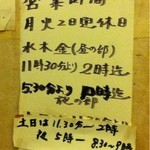 営業時間
月火2日定休日
水木金(昼の部)
11時30分より 2時迄
5,30分より 時迄
夜の部
土日は11.30分〜2時
夜 5時〜 8:30〜9時